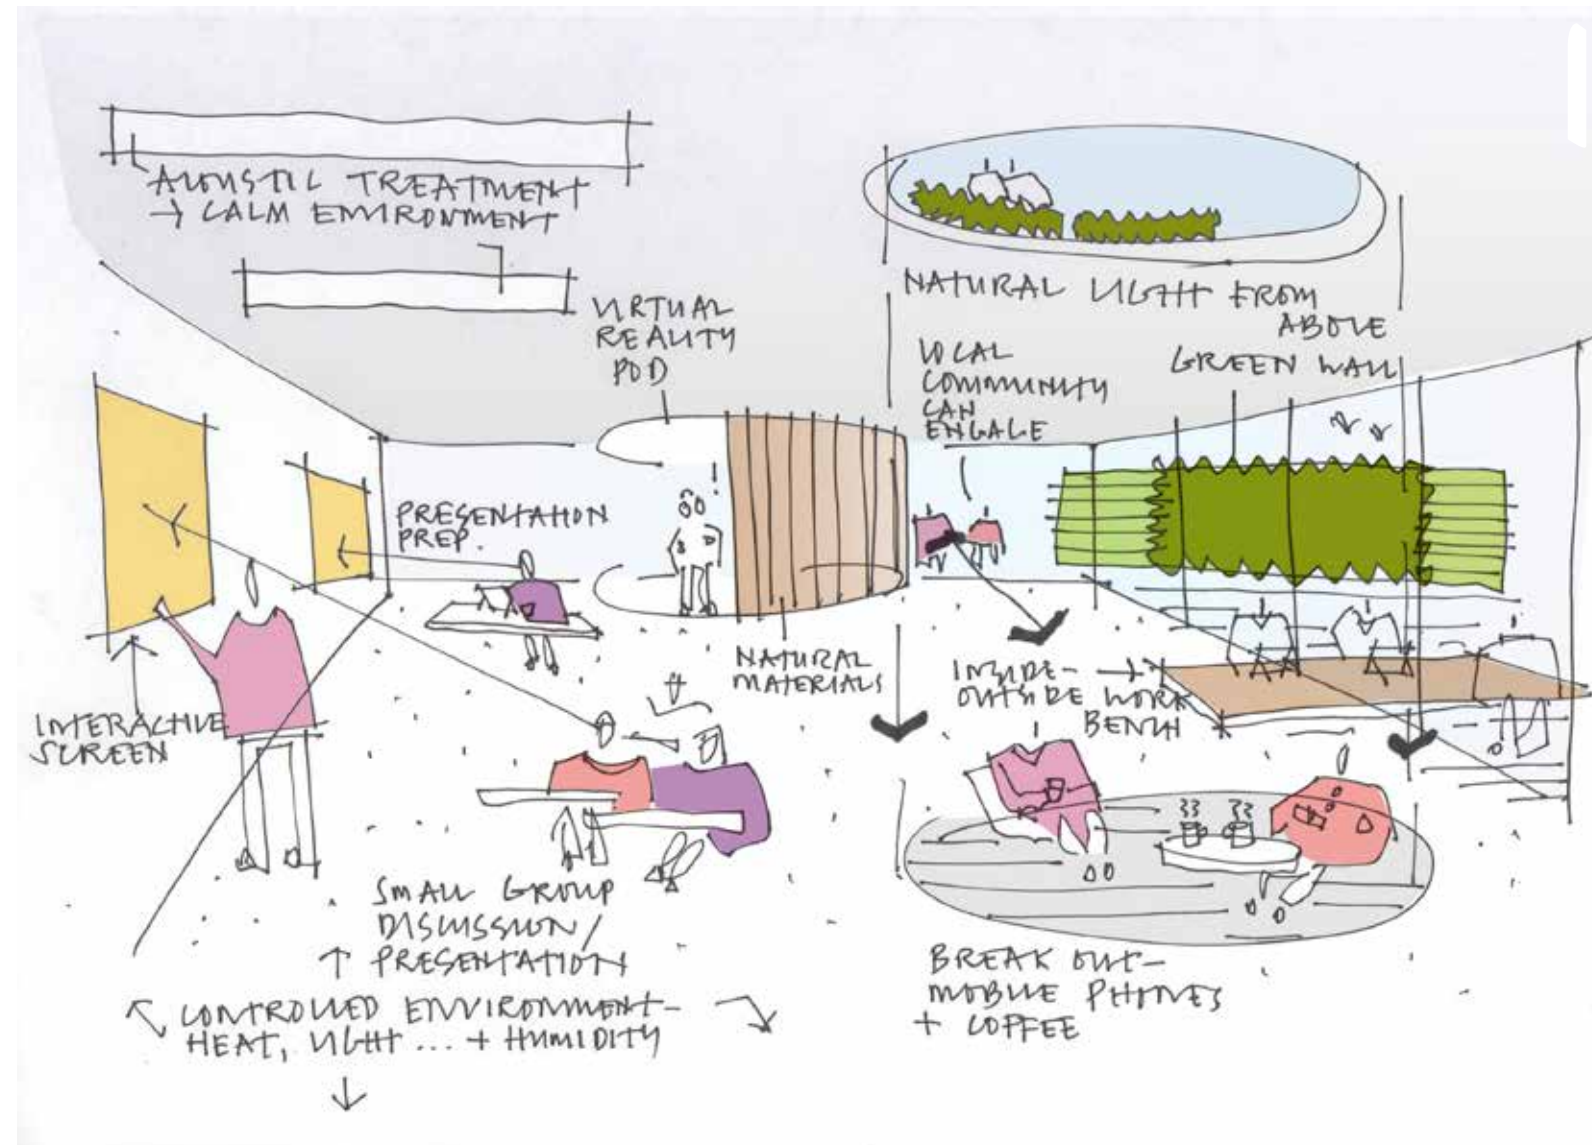 ACOUSTIC TREATMENT
→ CALM ENVIRONMENT
VIRTUAL
REALITY
POD
NATURAL LIGHT FROM
ABOVE
LOCAL
COMMUNITY
CAN
ENGAGE
GREEN WALL
PRESENTATION
PREP.
INTERACTIVE
SCREEN
NATURAL
MATERIALS
INSIDE-
OUTSIDE WORK
BENCH
SMALL GROUP
DISCUSSION/
↑ PRESENTATION
CONTROLLED ENVIRONMENT-
HEAT, LIGHT ... + HUMIDITY
BREAK OUT-
MOBILE PHONES
+ COFFEE